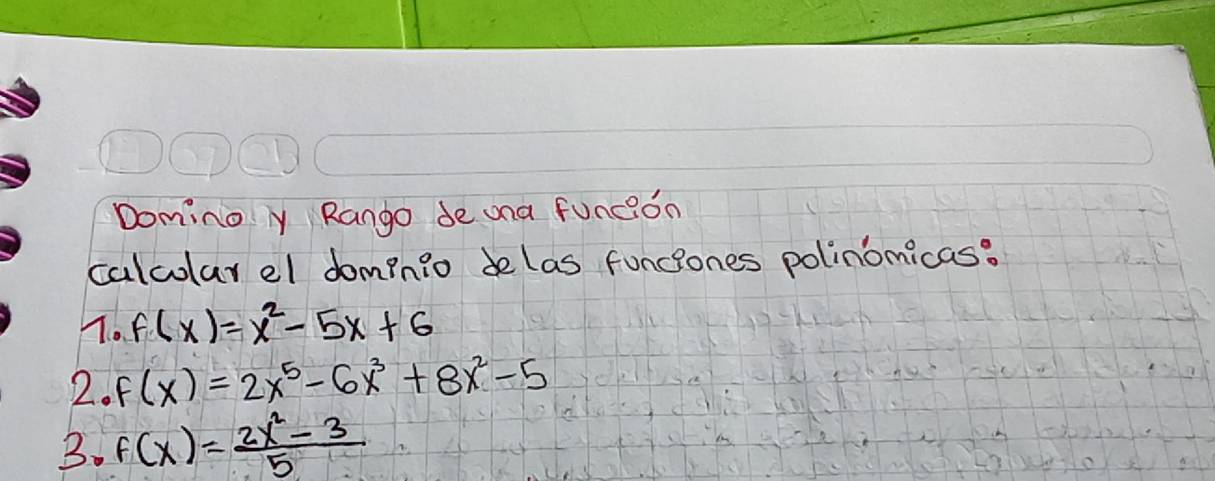 Domino y Rango de una función
calcular el dominio de las funciones polinómicas:
1. f(x) = x² - 5x + 6
2. f(x) = 2x⁵ - 6x³ + 8x² - 5
3. f(x) = \frac{2x² - 3}{5}